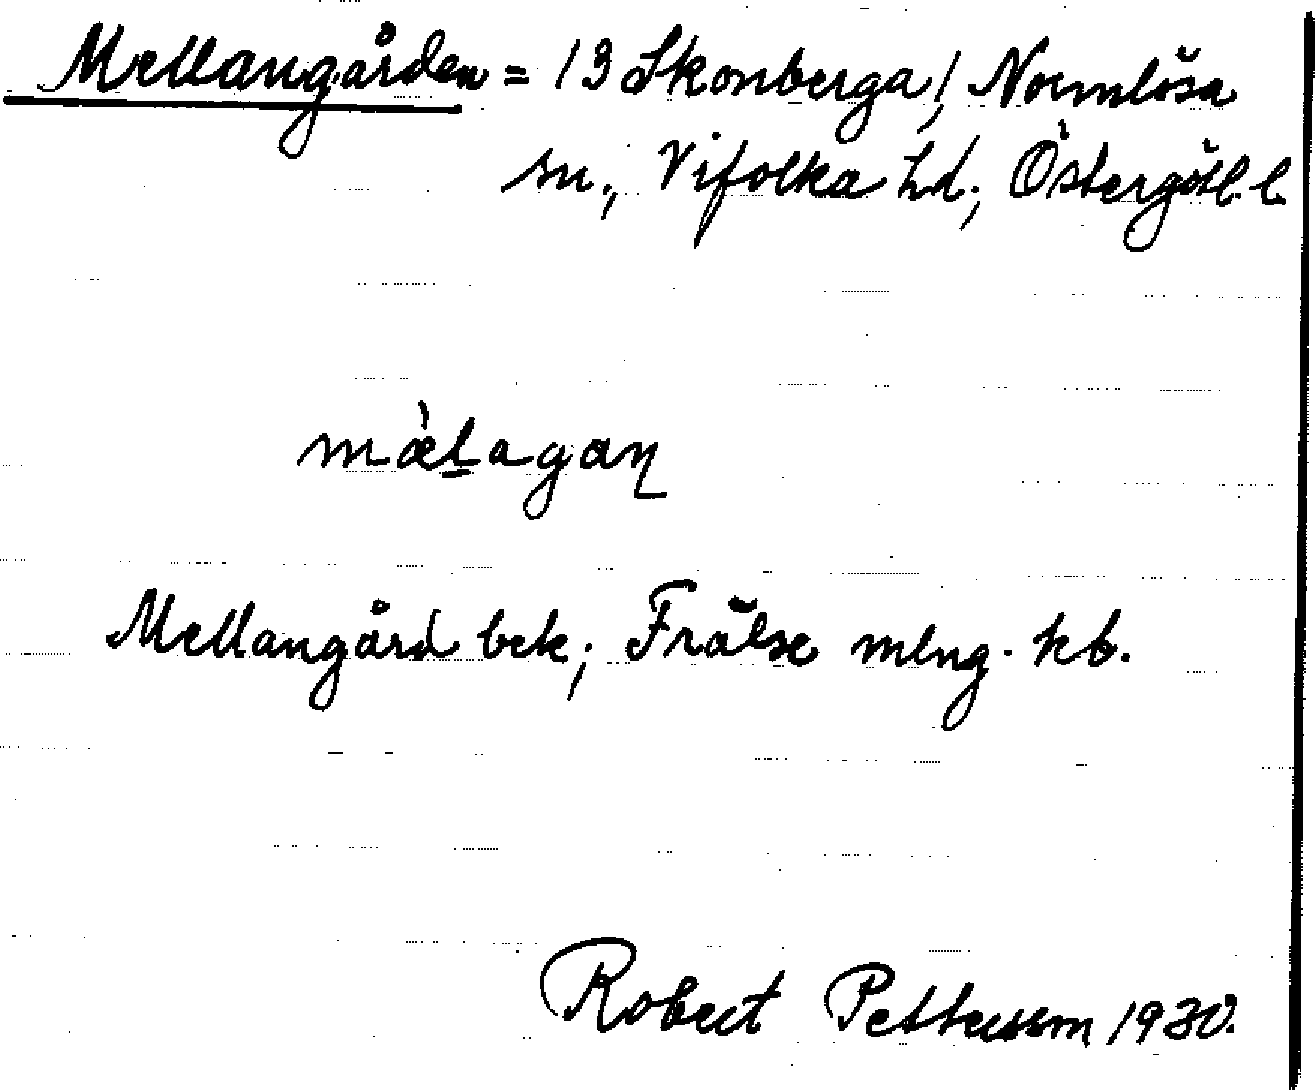 Mellangården = 13 Skonberga, Normlösa
sn, Vifolka hd, Östergötl. l.
mæ̀lagaɳ
Mellangård bek; Frälse mlng. kb.
Robert Pettersson 1930.